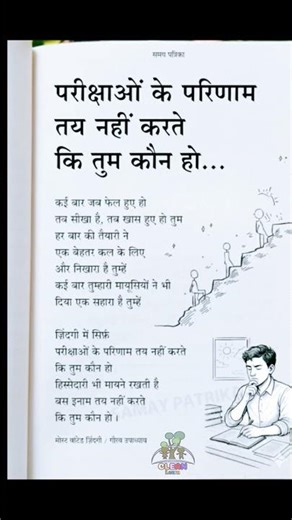 समय पत्रिका
परीक्षाओं के परिणाम
तय नहीं करते
कि तुम कौन हो...
कई बार जब फेल हुए हो
तब सीखा है, तब खास हुए हो तुम
हर बार की तैयारी ने
एक बेहतर कल के लिए
और निखारा है तुम्हें
कई बार तुम्हारी मायूसियों ने भी
दिया एक सहारा है तुम्हें
ज़िंदगी में सिर्फ़
परीक्षाओं के परिणाम तय नहीं करते
कि तुम कौन हो
हिस्सेदारी भी मायने रखती है
बस इनाम तय नहीं करते
कि तुम कौन हो।
SAMAY PATRIKA
मोस्ट वांटेड ज़िंदगी / गौरव उपाध्याय
CLEAN